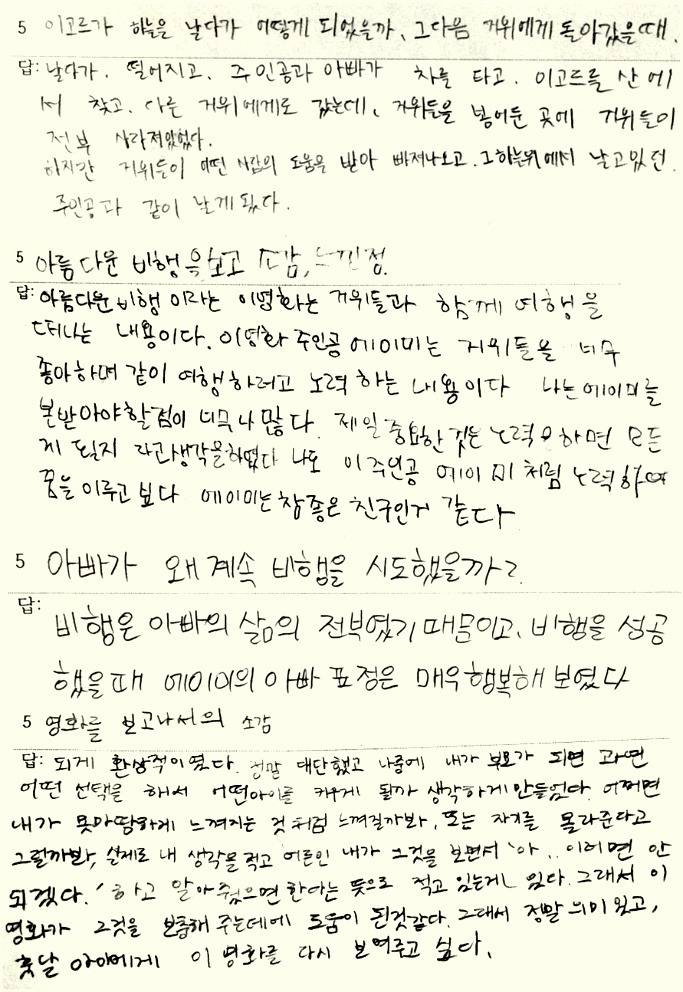 5 이고르가 하늘을 날다가 어떻게 되었을까, 그다음 거위에게 돌아갔을때.
답: 날다가. 떨어지고. 주인공과 아빠가 차를 타고. 이고르를 산에
서 찾고. 다른 거위에게로 갔는데, 거위들을 넣어둔 곳에 거위들이
전부 사라져있었다.
하지만 거위들이 어떤 사람의 도움을 받아 빠져나오고. 그 하늘위에서 날고있던.
주인공과 같이 날게 됬다.
5 아름다운 비행을 보고 소감, 느낀점.
답: 아름다운 비행 이라는 이영화는 거위들과 함께 여행을
떠나는 내용이다. 이영화 주인공 에이미는 거위들을 너무
좋아하며 같이 여행하려고 노력하는 내용이다 나는 에이미를
본받아야할점이 너무나 많다. 제일 중요한 것은 노력 하면 모든
게 된지 라고생각을하였다 나도 이 주인공 에이미 처럼 노력하여
꿈을 이루고 보다 에이미는 참 좋은 친구인거 같다
5 아빠가 왜 계속 비행을 시도했을까?
답: 비행은 아빠의 삶의 전부였기 때문이고, 비행을 성공
했을때 에이미의 아빠 표정은 매우행복해 보였다
5 영화를 보고나서의 소감
답: 되게 환상적이였다. 정말 대단했고 나중에 내가 부모가 되면 과연
어떤 선택을 해서 어떤아이를 키우게 될까 생각하게 만들었다. 어쩌면
내가 못마땅하게 느껴지는 것처럼 느껴질까봐, 또는 자기를 몰라준다고
그럴까봐, 실제로 내 생각을 적고 어른인 내가 그것을 보면서 '아.. 이러면 안
되겠다.' 하고 알아줬으면 한다는 뜻으로 적고 있는게 있다. 그래서 이
영화가 그것을 보충해 주는데에 도움이 된것같다. 그래서 정말 의미 있고,
훗날 아이에게 이 영화를 다시 보여주고 싶다.